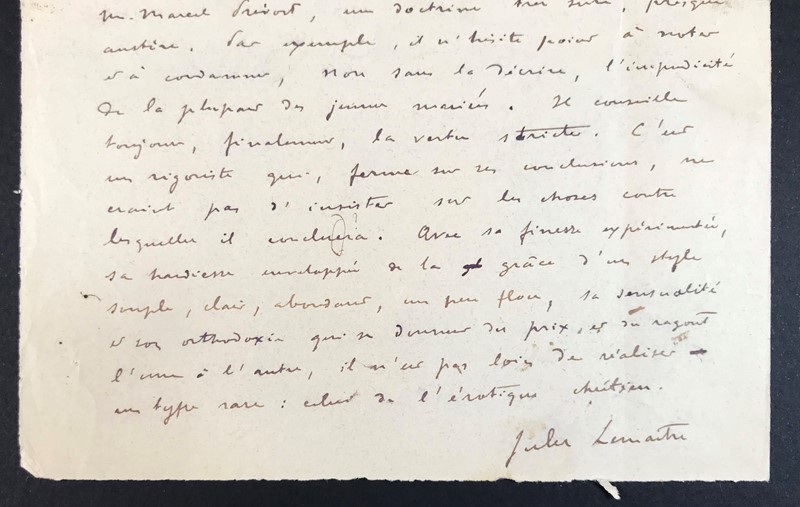 M. Marcel Prévost, une doctrine très sûre, presque
austère. Par exemple, il n'hésite point à noter
et à condamner, non sans la décrire, l'impudicité
de la plupart des jeunes mariés. Il conseille
toujours, finalement, la vertu stricte. C'est
un rigoriste qui, ferme sur ses conclusions, ne
craint pas d'insister sur les choses contre
lesquelles il concluera. Avec sa finesse expérimentée,
sa hardiesse enveloppée de la grâce d'un style
souple, clair, abondant, un peu flou, sa sensualité
et son orthodoxie qui se donnent du prix, et du ragoût
l'une à l'autre, il n'est pas loin de réaliser
un type rare : celui de l'érotique chrétien.
Jules Lemaître